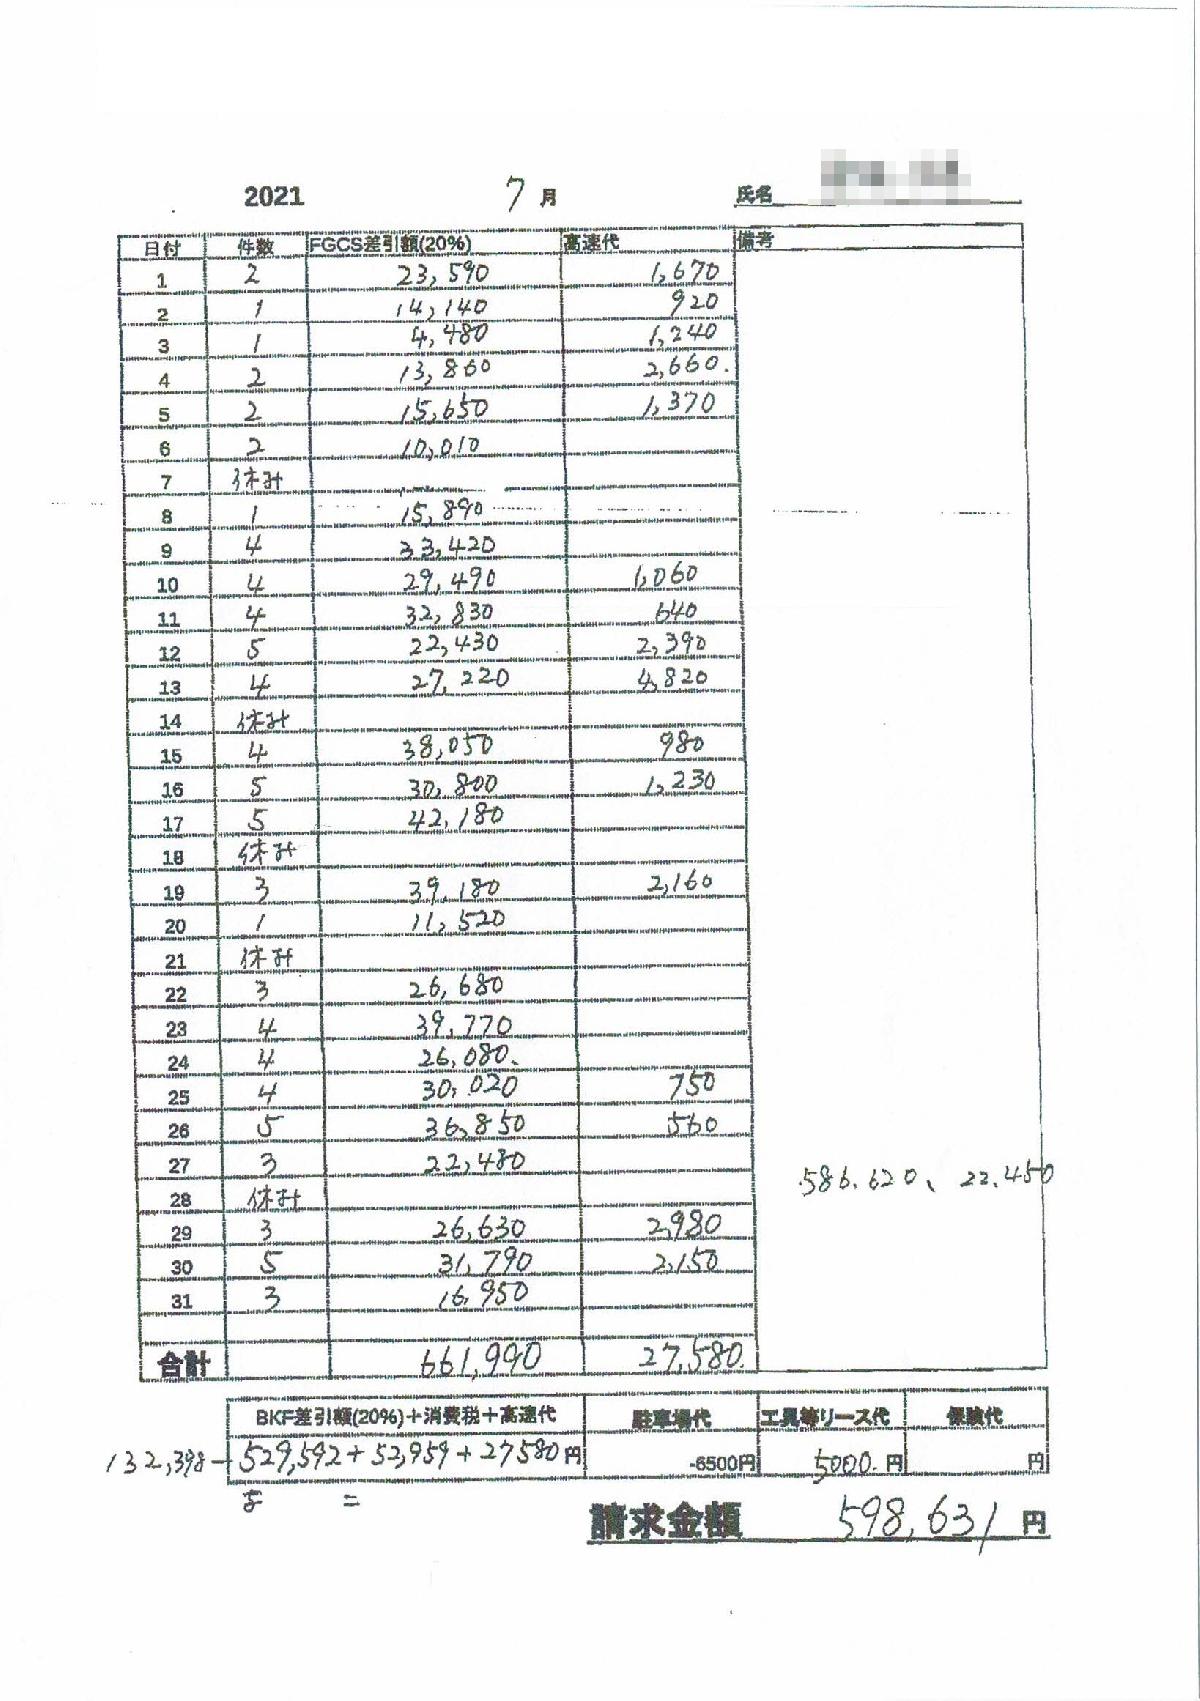 2021 7月 氏名
日付 件数 FGCS差引額(20%) 高速代 備考
1 2 23,590 1,670
2 1 14,140 920
3 1 4,480 1,240
4 2 13,860 2,660.
5 2 15,650 1,370
6 2 10,010
7 休み
8 1 15,890
9 4 33,420
10 4 29,490 1,060
11 4 32,830 640
12 5 22,430 2,390
13 4 27,220 4,820
14 休み
15 4 38,050 980
16 5 30,800 1,230
17 5 42,180
18 休み
19 3 39,180 2,160
20 1 11,520
21 休み
22 3 26,680
23 4 39,770
24 4 26,080.
25 4 30,020 750
26 5 36,850 560
27 3 22,480
586.620、22.450
28 休み
29 3 26,630 2,980
30 5 31,790 2,150
31 3 16,950
合計 661,990 27,580.
BKF差引額(20%)+消費税+高速代 駐車場代 工具等リース代 保険代
132,398- 529,592+52,959+27580円 -6500円 5000.円 円
=
請求金額 598,631円